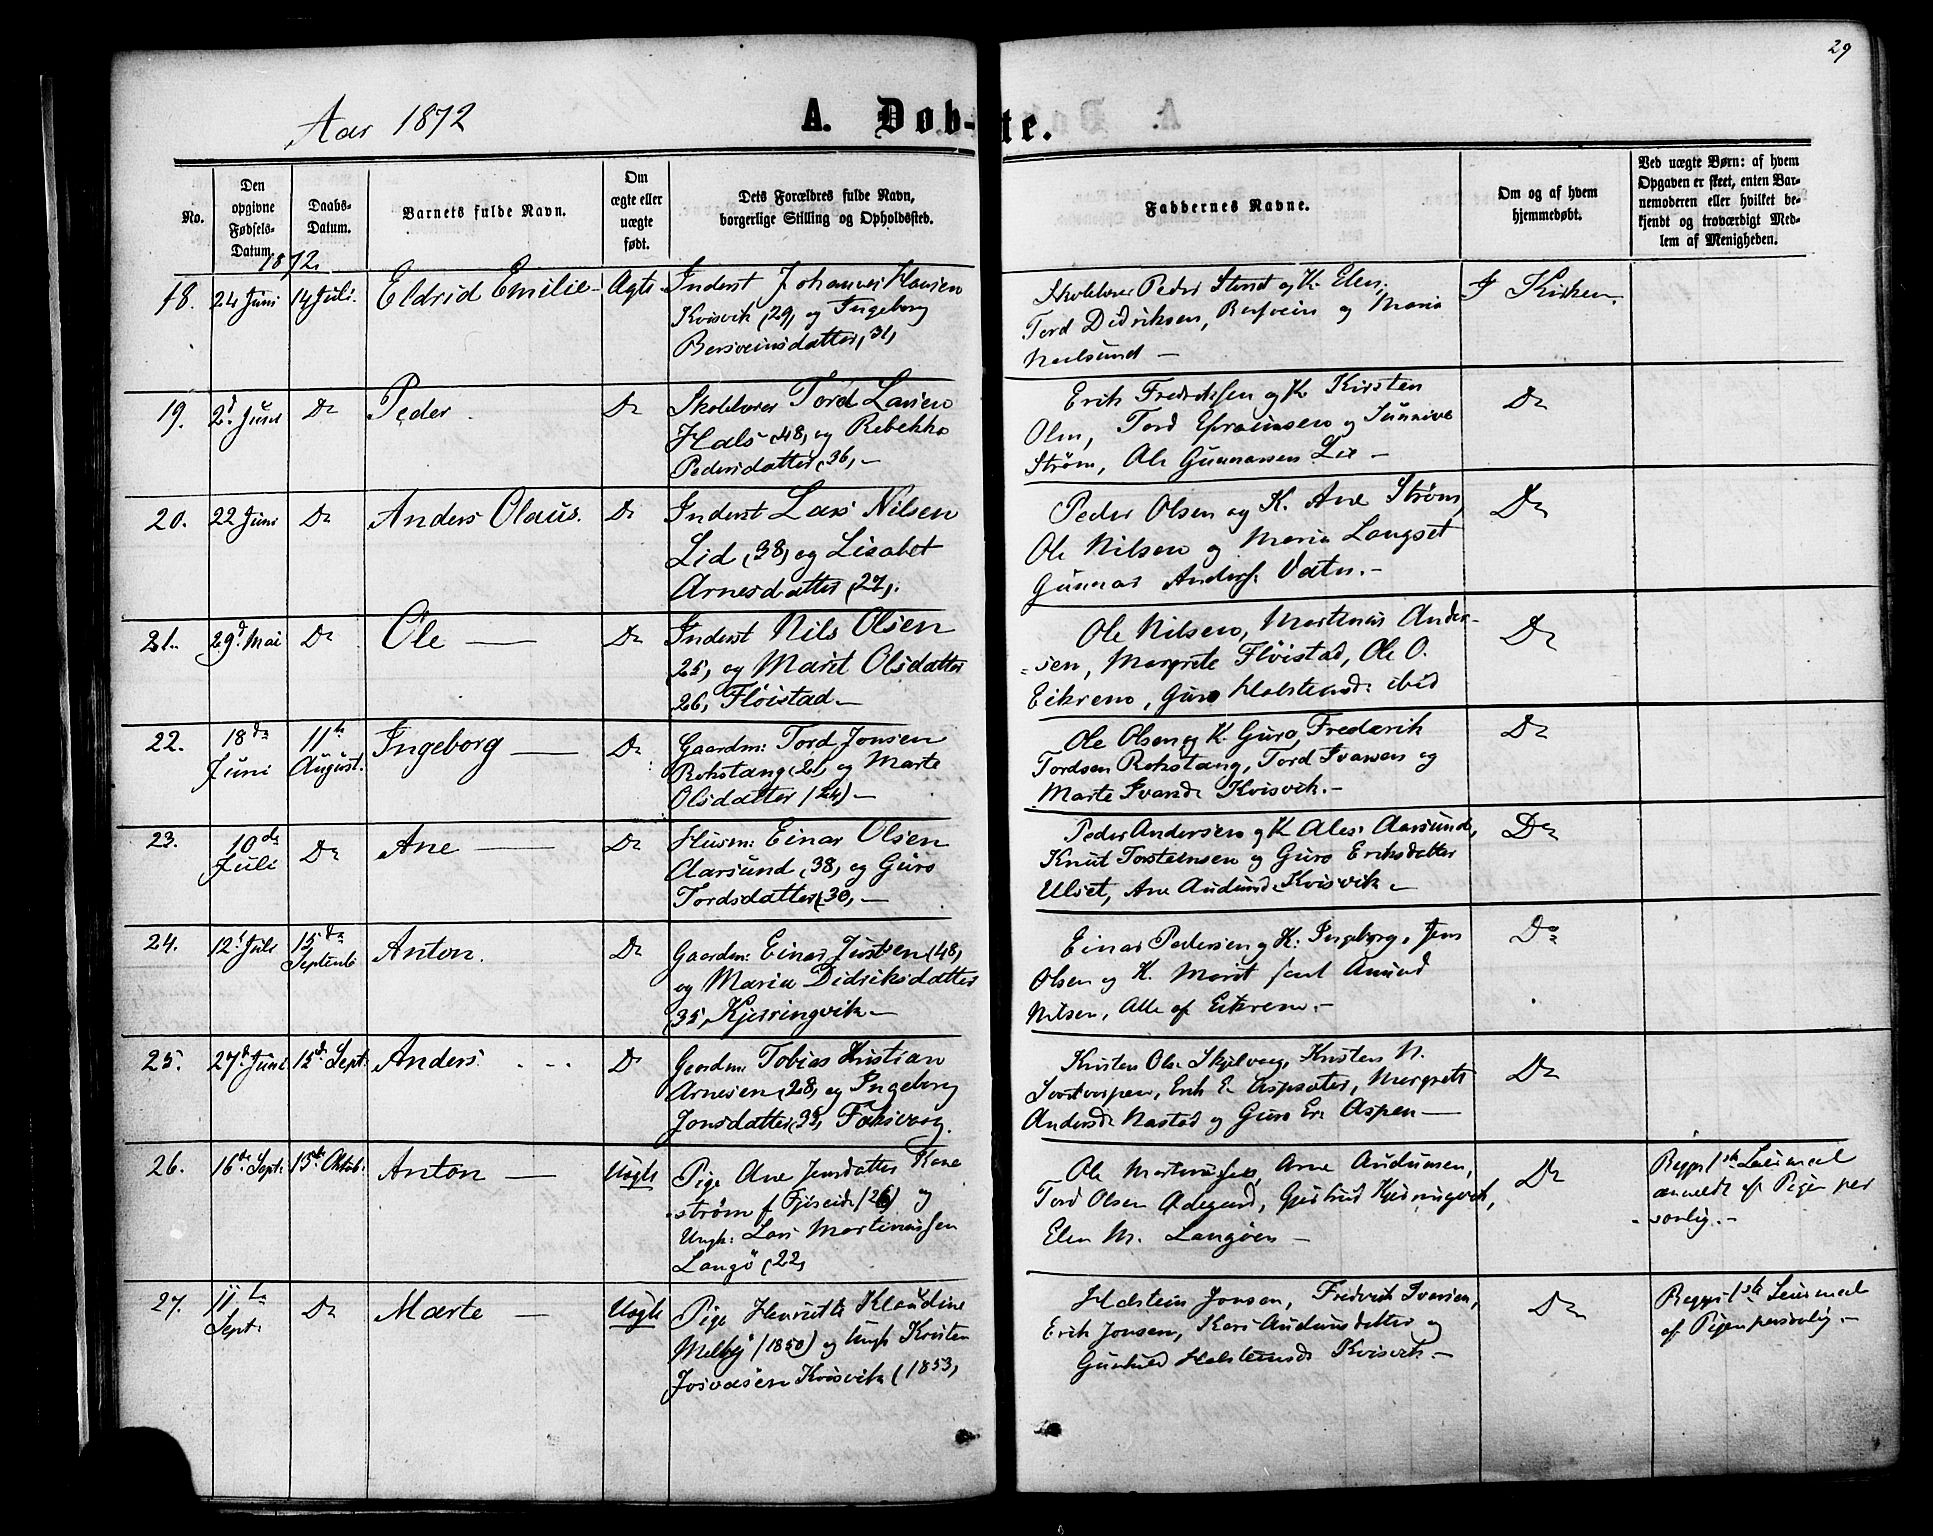 29
Aar 1872
A. Døb-te.
No.
Den
opgivne
Fødsels-
Datum.
Daabs-
Datum.
Barnets fulde Navn.
Om
ægte eller
uægte
født.
Dets Forældres fulde Navn,
borgerlige Stilling og Opholdssted.
Faddernes Navne.
Om og af hvem
hjemmedøbt.
Ved uægte Børn: af hvem
Opgaven er skeet, enten Bar-
nemoderen eller hvilket be-
kjendt og troværdigt Med-
lem af Menigheden.
1872.
18. 24 Juni 14 Juli. Eldrid Emilie Ægte Inderst Johannes Klausen
Kvisvik (29, og Ingeborg
Bersveinsdatter, 31,
Skolelærer Peder Stend og K. Elen,
Tord Didriksen, Bersvein og Maria
I Kirken.
19. 2d Juni Do Peder. Do Skolelærer Tord Larsen
Hals (48, og Rebekka
Pedersdatter (36, —
Erik Fredriksen og K. Kirsten
Olsn, Tord Efraimsen og Sunniva
Strøm, Ole Gunnarsen Lie —
Do
20. 22 Juni Do Anders Olaus. Do Inderst Lars Nilsen
Lid (38, og Lisabet
Arnesdatter (27,.
Peder Olsen og K. Ane Strøm,
Ole Nilsen og Maria Langset
Gunnar Anders. Vatn. —
Do
21. 29d Mai Do Ole — Do Inderst Nils Olsen
25, og Marit Olsdatter
26, Fløistad —
Ole Nilsen, Martinus Ander-
-sen, Margrete Fløistad, Ole O.
Eikrem, Guro Holstensd: ibid
Do
22. 18de Juni 11te August. Ingeborg — Do Gaardm: Tord Jonsen
Rokstang (21, og Marte
Olsdatter (24) —
Ole Olsen og K. Guro, Frederik
Tordsen Rokstang, Tord Ivarsen og
Marte Ivarsd. Kvisvik. —
Do
23. 10de Juli Do Ane — Do Husm: Einar Olsen
Aarsund (38, og Guro
Tordsdatter (30, —
Peder Andersen og K Ales Aarsund,
Knut Torsteinsen og Guro Eriksdatter
Ulset, Ane Audund. Kvisvik —
Do
24. 12t Juli 15de Septemb Anton. Do Gaardm: Einar Justsen (48,
og Maria Didriksdatter
35, Kjerringvik —
Einar Pedersen og K: Ingeborg, Jens
Olsen og K. Marit samt Amund
Nilsen, Alle af Eikrem. —
Do
25. 27d Juni 15d Sept. Anders. Do Gaardm: Tobias Kristian
Arnesen (28, og Ingeborg
Jonsdatter (35,
Kristen Ols. Skjelvaag, Kristen N.
Erik E. Aspsæter, Margrete
Andersd. Nastad og Guro Er. Aspen —
Do
26. 16de Sept: 15de Oktob: Anton — Uægte Pige Ane Jensdatter Kane
strøm f (26) og
Ungk: Lars Martinussen
Langø (22,
Ole Martinussen, Arne Audunsen,
Tord Olsen Ødegaard, Gjertrud Kjerringvik,
Elen M. Langøen —
Do
Begges 1ste Leiermaal
anmeldt af Pigen per
-sonlig. —
27. 11te Sept: Do Marte — Uægte Pige Henriette Klaudine
Melby (1850) og Ungk. Kristen
Josvasen Kvisvik (1853,
Holstein Jonsen, Fredrik Ivarsen,
Erik Jonsen, Kari Audunsdatter og
Gunhild Holsteinsd. Kvisvik. —
Do
Begges 1ste Leiermaal
af Pigen personlig. —